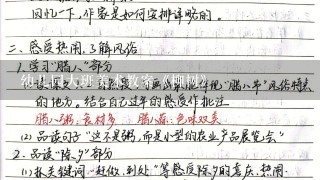 回忆一下，作家是如何安排详略的。
二、感受热闹，了解风俗
1.学习“腊八”部分
幼儿园大班美术教案
体现“腊八节”风俗特点
的地方。结合自己过年的感受作批注
腊八粥：食材多 腊八蒜：色味双美
(2)品读句子“这不是粥，而是小型的农业产品展览会”
2.品读“除夕”部分
(1)抓关键词“赶做、到处”等感悟除夕的喜庆、热闹.